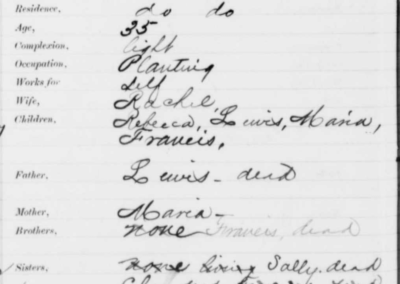 Residence, do do
Age, 35
Complexion, light
Occupation, Planting
Works for Self
Wife, Rachel,
Children, Rebecca, Lewis, Maria,
Francis,
Father, Lewis - dead
Mother, Maria -
Brothers, none Francis, dead
Sisters, none living Sally. dead